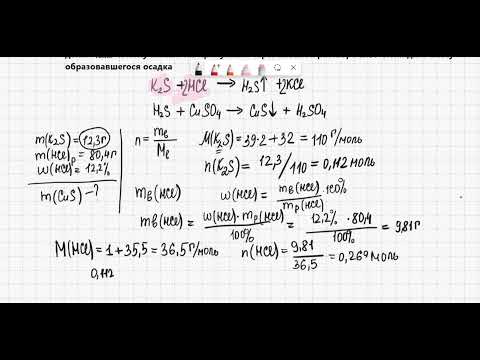 образовавшегося осадка
K₂S + 2HCl → H₂S↑ + 2KCl
H₂S + CuSO₄ → CuS↓ + H₂SO₄
m(K₂S) = 12,3г
m(HCl)р = 80,4г
ω(HCl) = 12,2%
m(CuS) - ?
n = mв / Mв
M(K₂S) = 39·2 + 32 = 110 г/моль
n(K₂S) = 12,3/110 = 0,112 моль
mв(HCl)
ω(HCl) = mв(HCl) / mр(HCl) · 100%
mв(HCl) = ω(HCl) · mр(HCl) / 100% = 12,2% · 80,4 / 100% = 9,81г
M(HCl) = 1 + 35,5 = 36,5 г/моль
n(HCl) = 9,81 / 36,5 = 0,269 моль
0,112